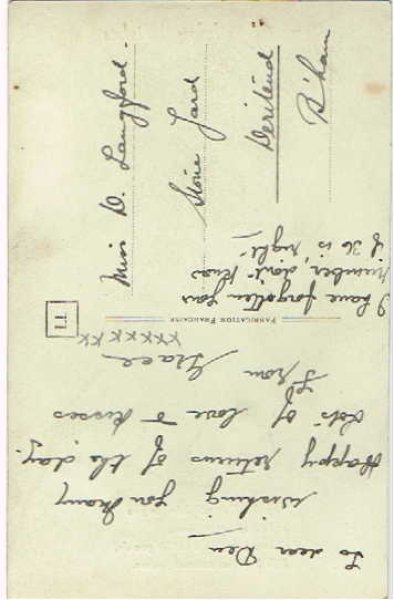 To dear Dee
Wishing you Many
Happy returns of the day.
Lots of love & kisses
From
Grace
xxxxxxx
I have forgotten your
number, don't know
if 36 is right
11
FABRICATION FRANÇAISE
Miss D. Langford.
Stone Yard
Deritend
B'ham